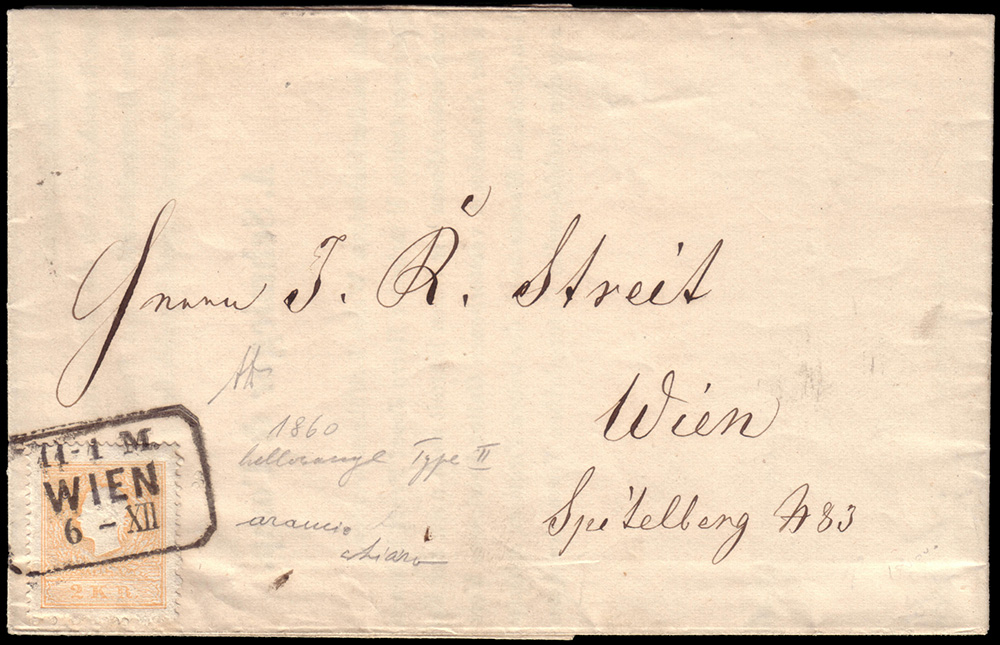 Herrn J. R. Streit
Wien
Spitelberg # 83
1860
hellorange Type II
arancio
chiaro
11-1 M.
WIEN
6 - XII
2 KR